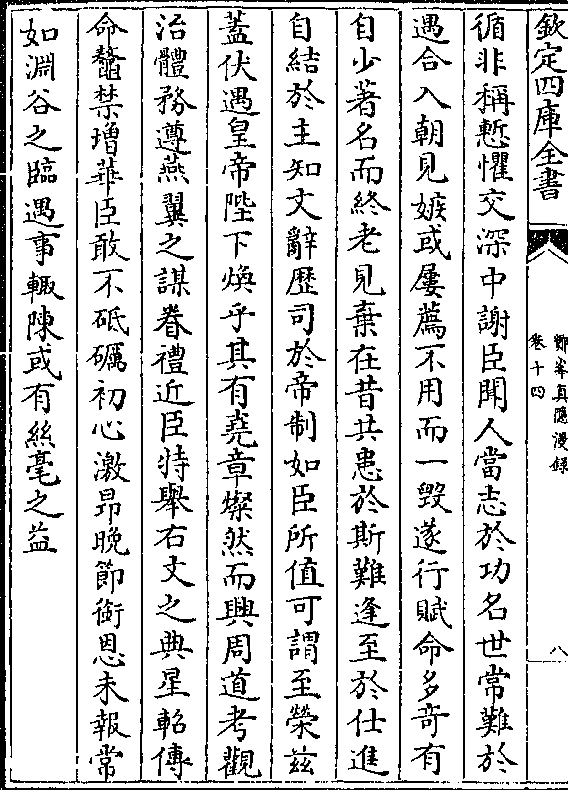 欽定四庫全書
鄮峯真隱漫録
卷十四
八
循非稱慙懼交深中謝臣聞人當志於功名世常難於
遇合入朝見嫉或屢薦不用而一毀遂行賦命多奇有
自少著名而終老見棄在昔共患於斯難逢至於仕進
自結於主知文辭歴司於帝制如臣所值可謂至榮兹
蓋伏遇皇帝陛下煥乎其有堯章燦然而興周道考觀
治體務遵燕翼之謀眷禮近臣特舉右文之典星軺傳
命鼇禁增華臣敢不砥礪初心激昂晚節銜恩未報常
如淵谷之臨遇事輙陳或有絲毫之益